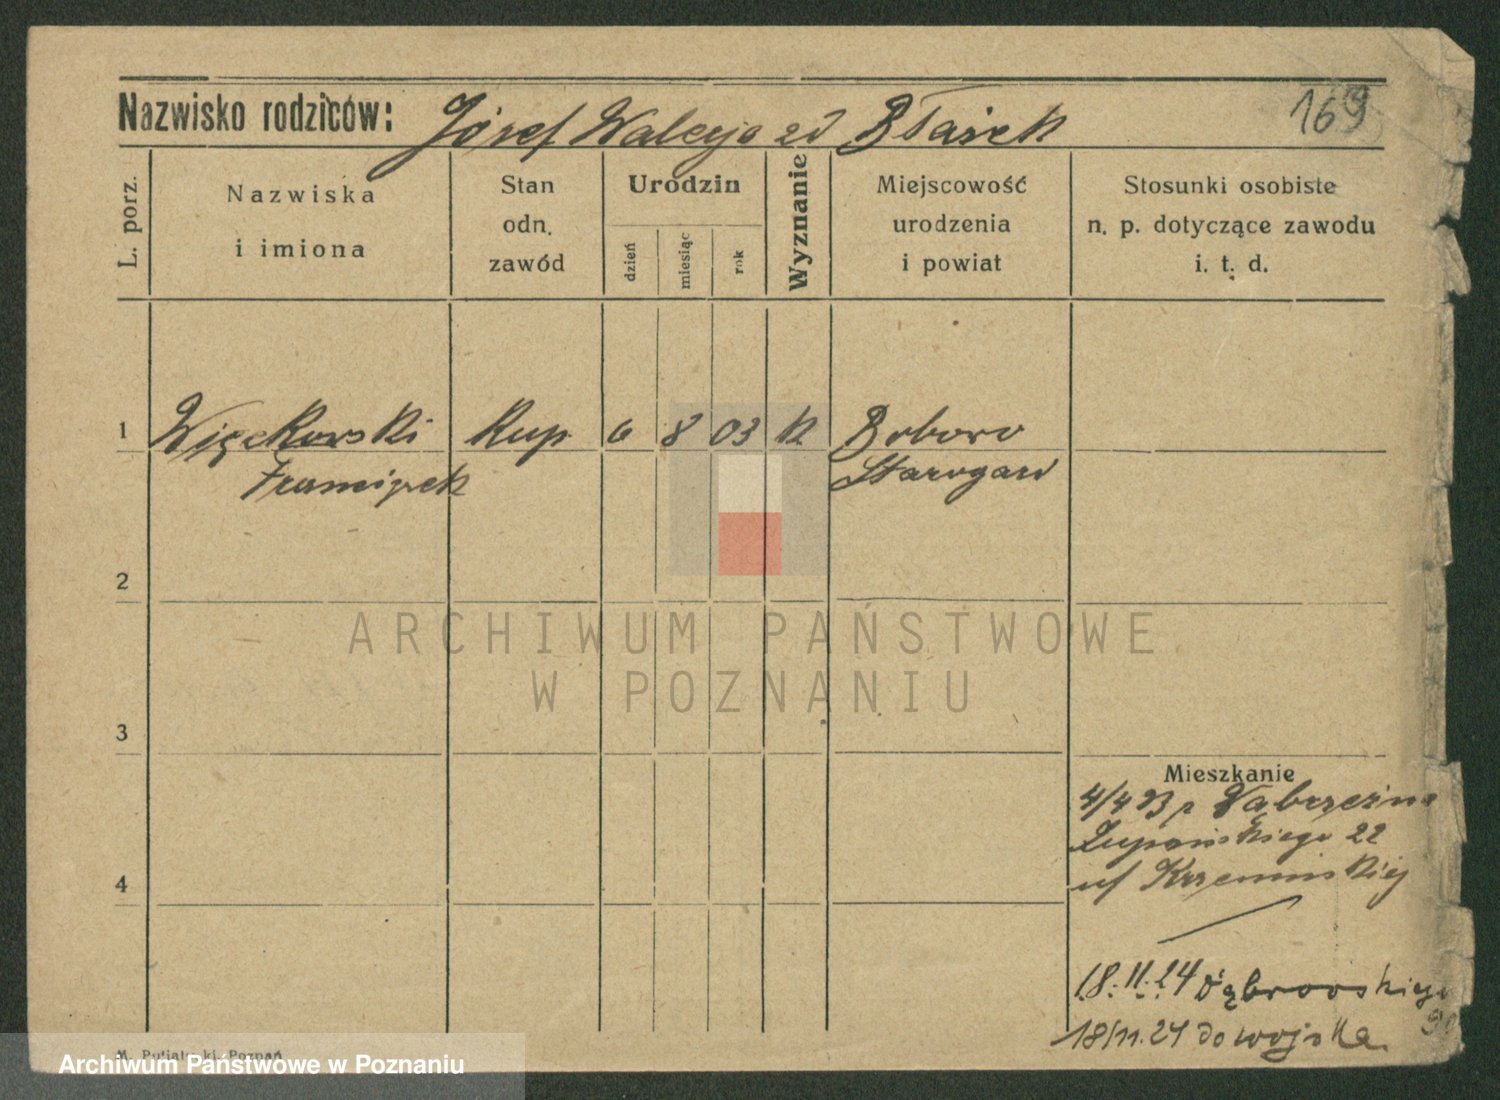 169
Nazwisko rodziców: Józef Walerja zd Błażek
L. porz.
Nazwiska
i imiona
Stan
odn.
zawód
Urodzin
dzień
miesiąc
rok
Wyznanie
Miejscowość
urodzenia
i powiat
Stosunki osobiste
n. p. dotyczące zawodu
i. t. d.
1 Więckowski Kup. 6 8 03 k Boboro
Franciszek Starogard
2
3
4
Mieszkanie
4/4 23 z Wąbrzeźna
Żupańskiego 22
u/ Krzemińskiej
18.11.24 Dąbrowskiego
90
18/11.24 do wojska.
ARCHIWUM PAŃSTWOWE
W POZNANIU
Archiwum Państwowe w Poznaniu